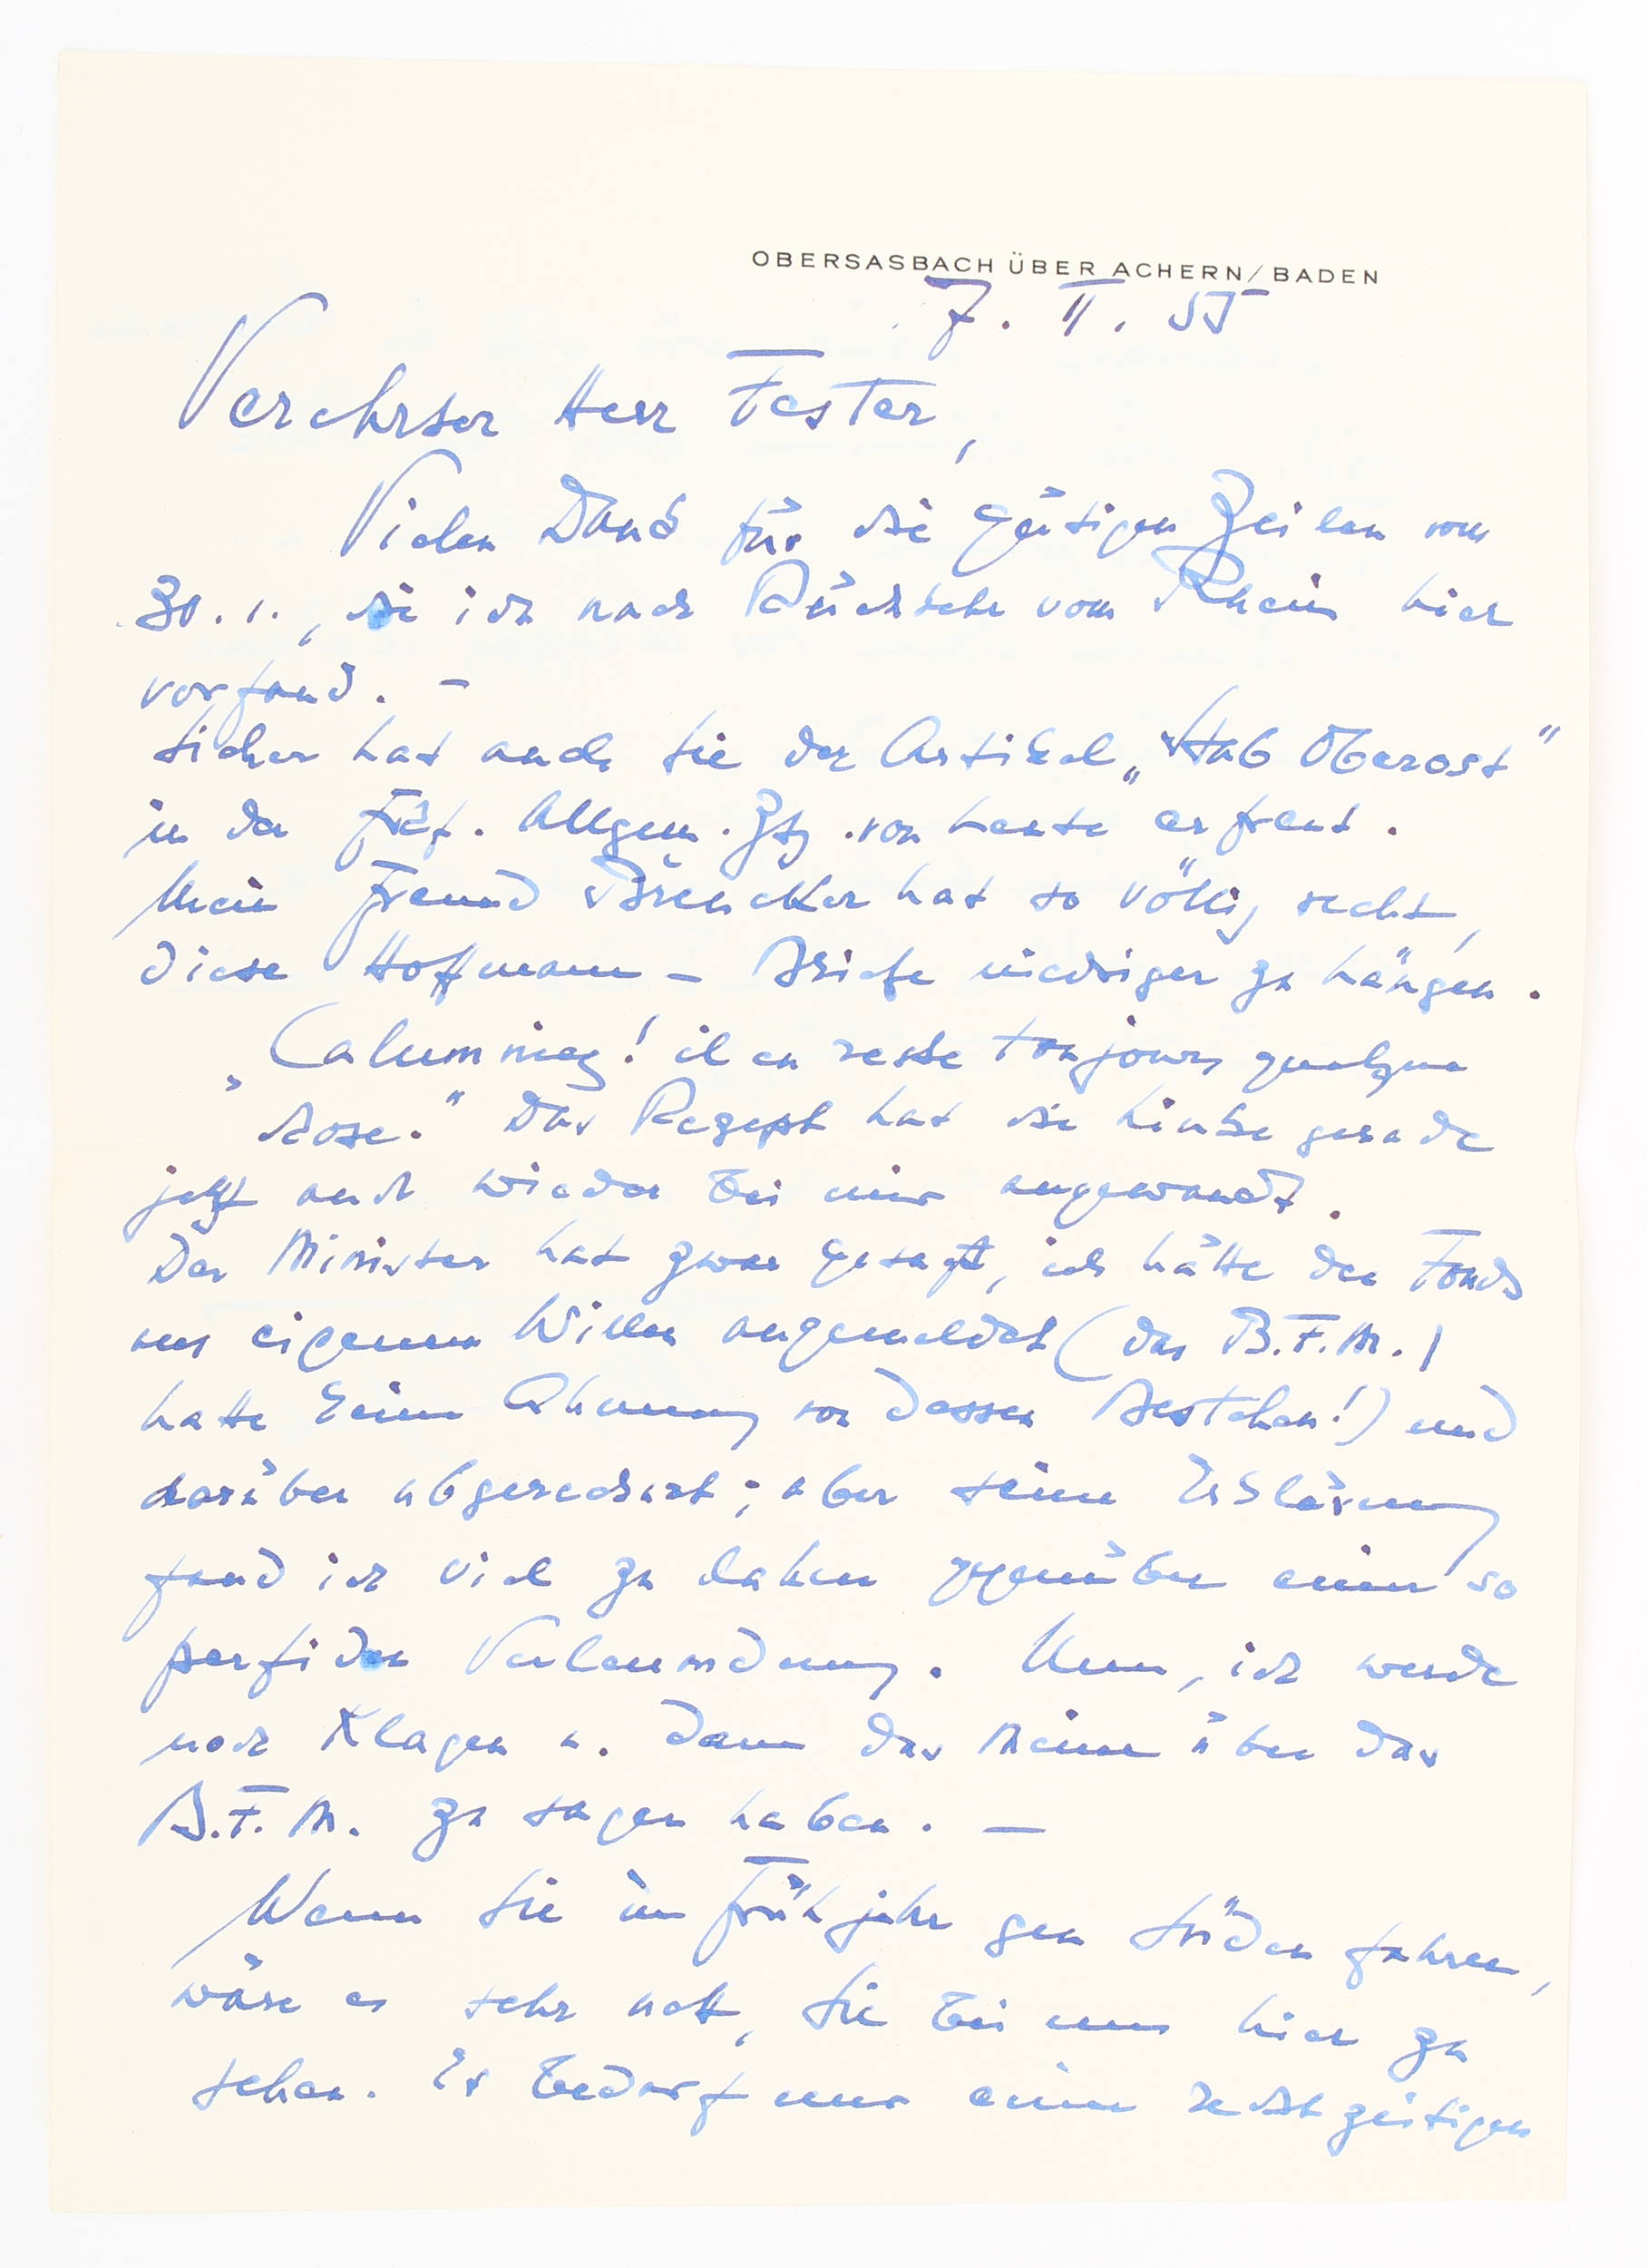 OBERSASBACH ÜBER ACHERN/BADEN
7. II. 55
Verehrter Herr Fester,
Vielen Dank für die gütigen Zeilen vom
30. 1., die ich nach Rückkehr vom Rhein hier
vorfand. –
Sicher hat auch Sie der Artikel „Stab Oberost"
in der Frkf. Allgem. Ztg. von heute erfreut.
Mein Freund hat so völlig recht,
diese Hoffmann – Briefe niedriger zu hängen.
„Calumniez! il en reste toujours quelque
chose." Das Rezept hat die Linke gerade
jetzt auch wieder bei mir angewandt.
Der Minister hat zwar gesagt, ich hätte den Fonds
aus eigenem Willen angemeldet (das B.F.M.
hatte keine Ahnung von dessen Bestehen!) und
darüber abgerechnet; aber seine Erklärung
fand ich viel zu lahm gegenüber einer so
perfiden Verleumdung. Nun, ich werde
noch klagen u. dann das Meine über das
B.F.M. zu sagen haben. –
Wenn Sie im Frühjahr gen Süden fahren,
wäre es sehr nett, Sie bei uns hier zu
sehen. Es bedarf nur einer rechtzeitigen